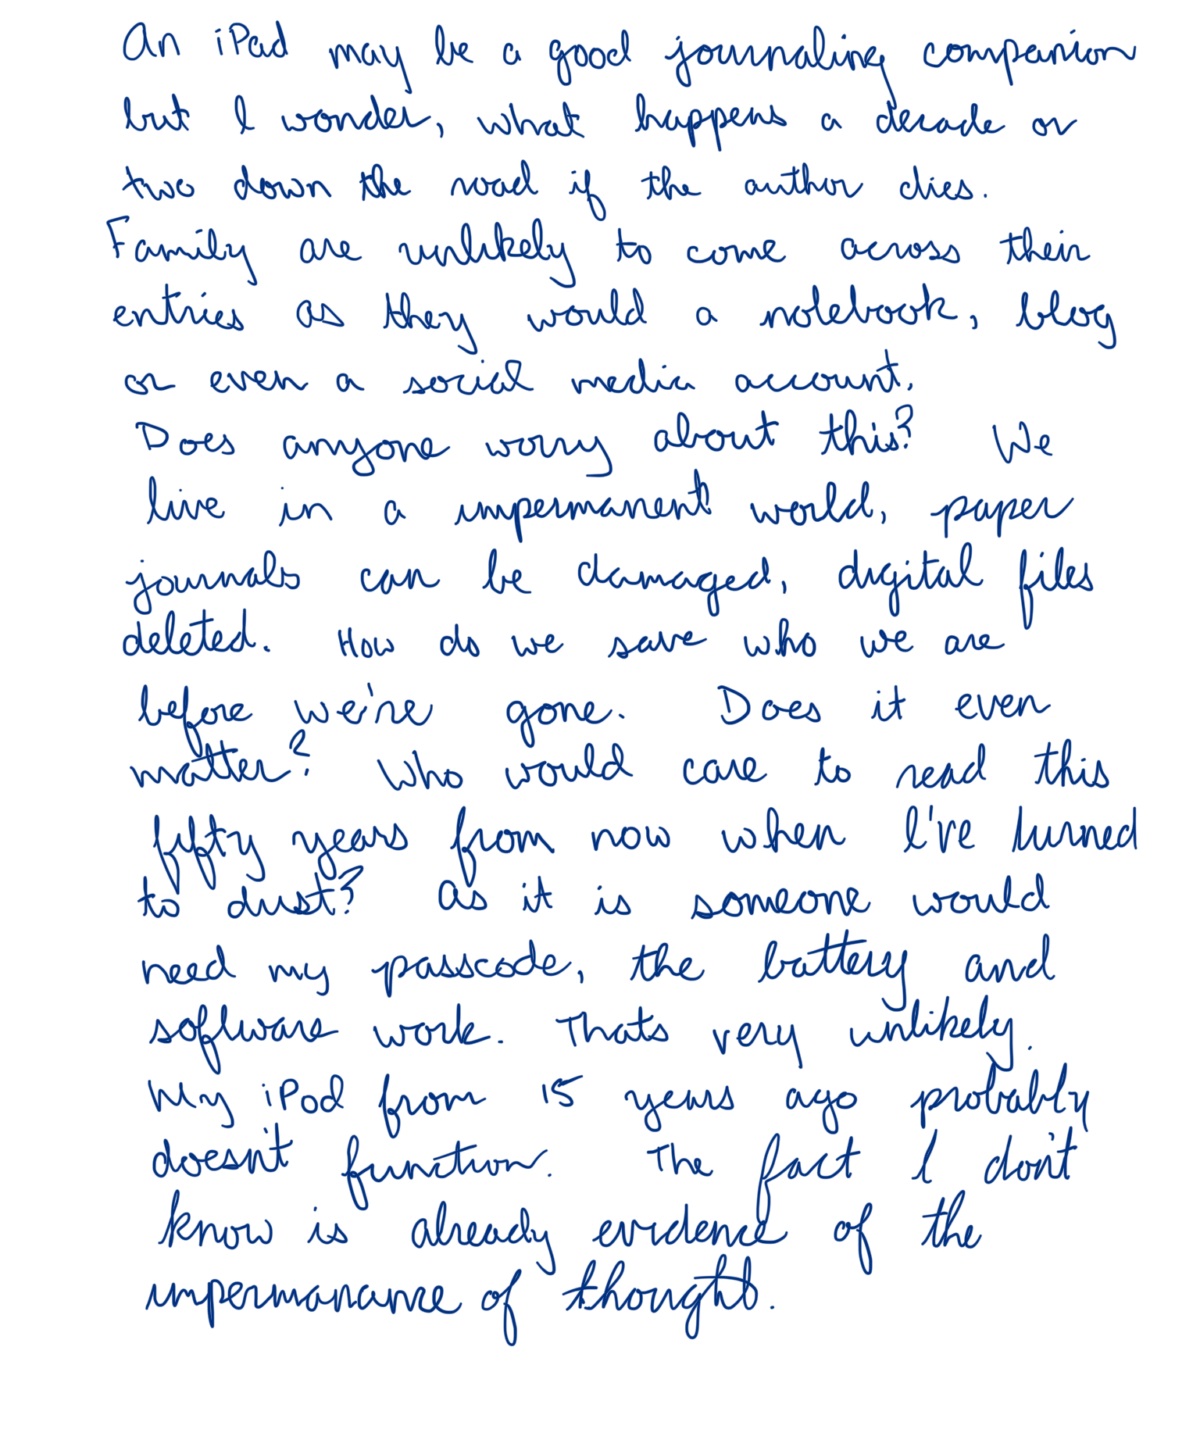 An iPad may be a good journaling companion
but I wonder, what happens a decade or
two down the road if the author dies.
Family are unlikely to come across their
entries as they would a notebook, blog
or even a social media account.
Does anyone worry about this? We
live in a impermanent world, paper
journals can be damaged, digital files
deleted. How do we save who we are
before we're gone. Does it even
matter? Who would care to read this
fifty years from now when I've turned
to dust? As it is someone would
need my passcode, the battery and
software work. Thats very unlikely.
My iPod from 15 years ago probably
doesn't function. The fact I don't
know is already evidence of the
impermanance of thought.